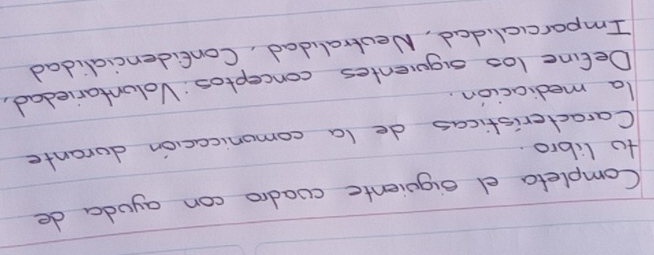 Completa el siguiente cuadro con ayuda de
tu libro.
Características de la comunicación durante
la mediación.
Define los siguientes conceptos: Voluntariedad,
Imparcialidad, Neutralidad, Confidencialidad